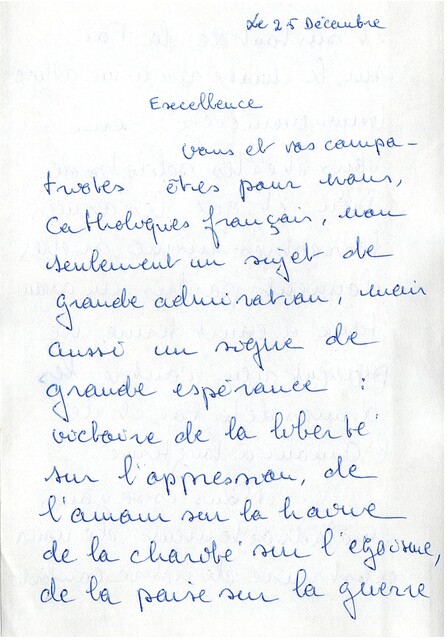 Le 25 Décembre
Excellence
vous et vos compa-
triotes êtes pour nous,
catholiques français, non
seulement un sujet de
grande admiration, mais
aussi un signe de
grande espérance :
victoire de la liberté
sur l'oppression, de
l'amour sur la haine
de la charité sur l'égoïsme,
de la paix sur la guerre